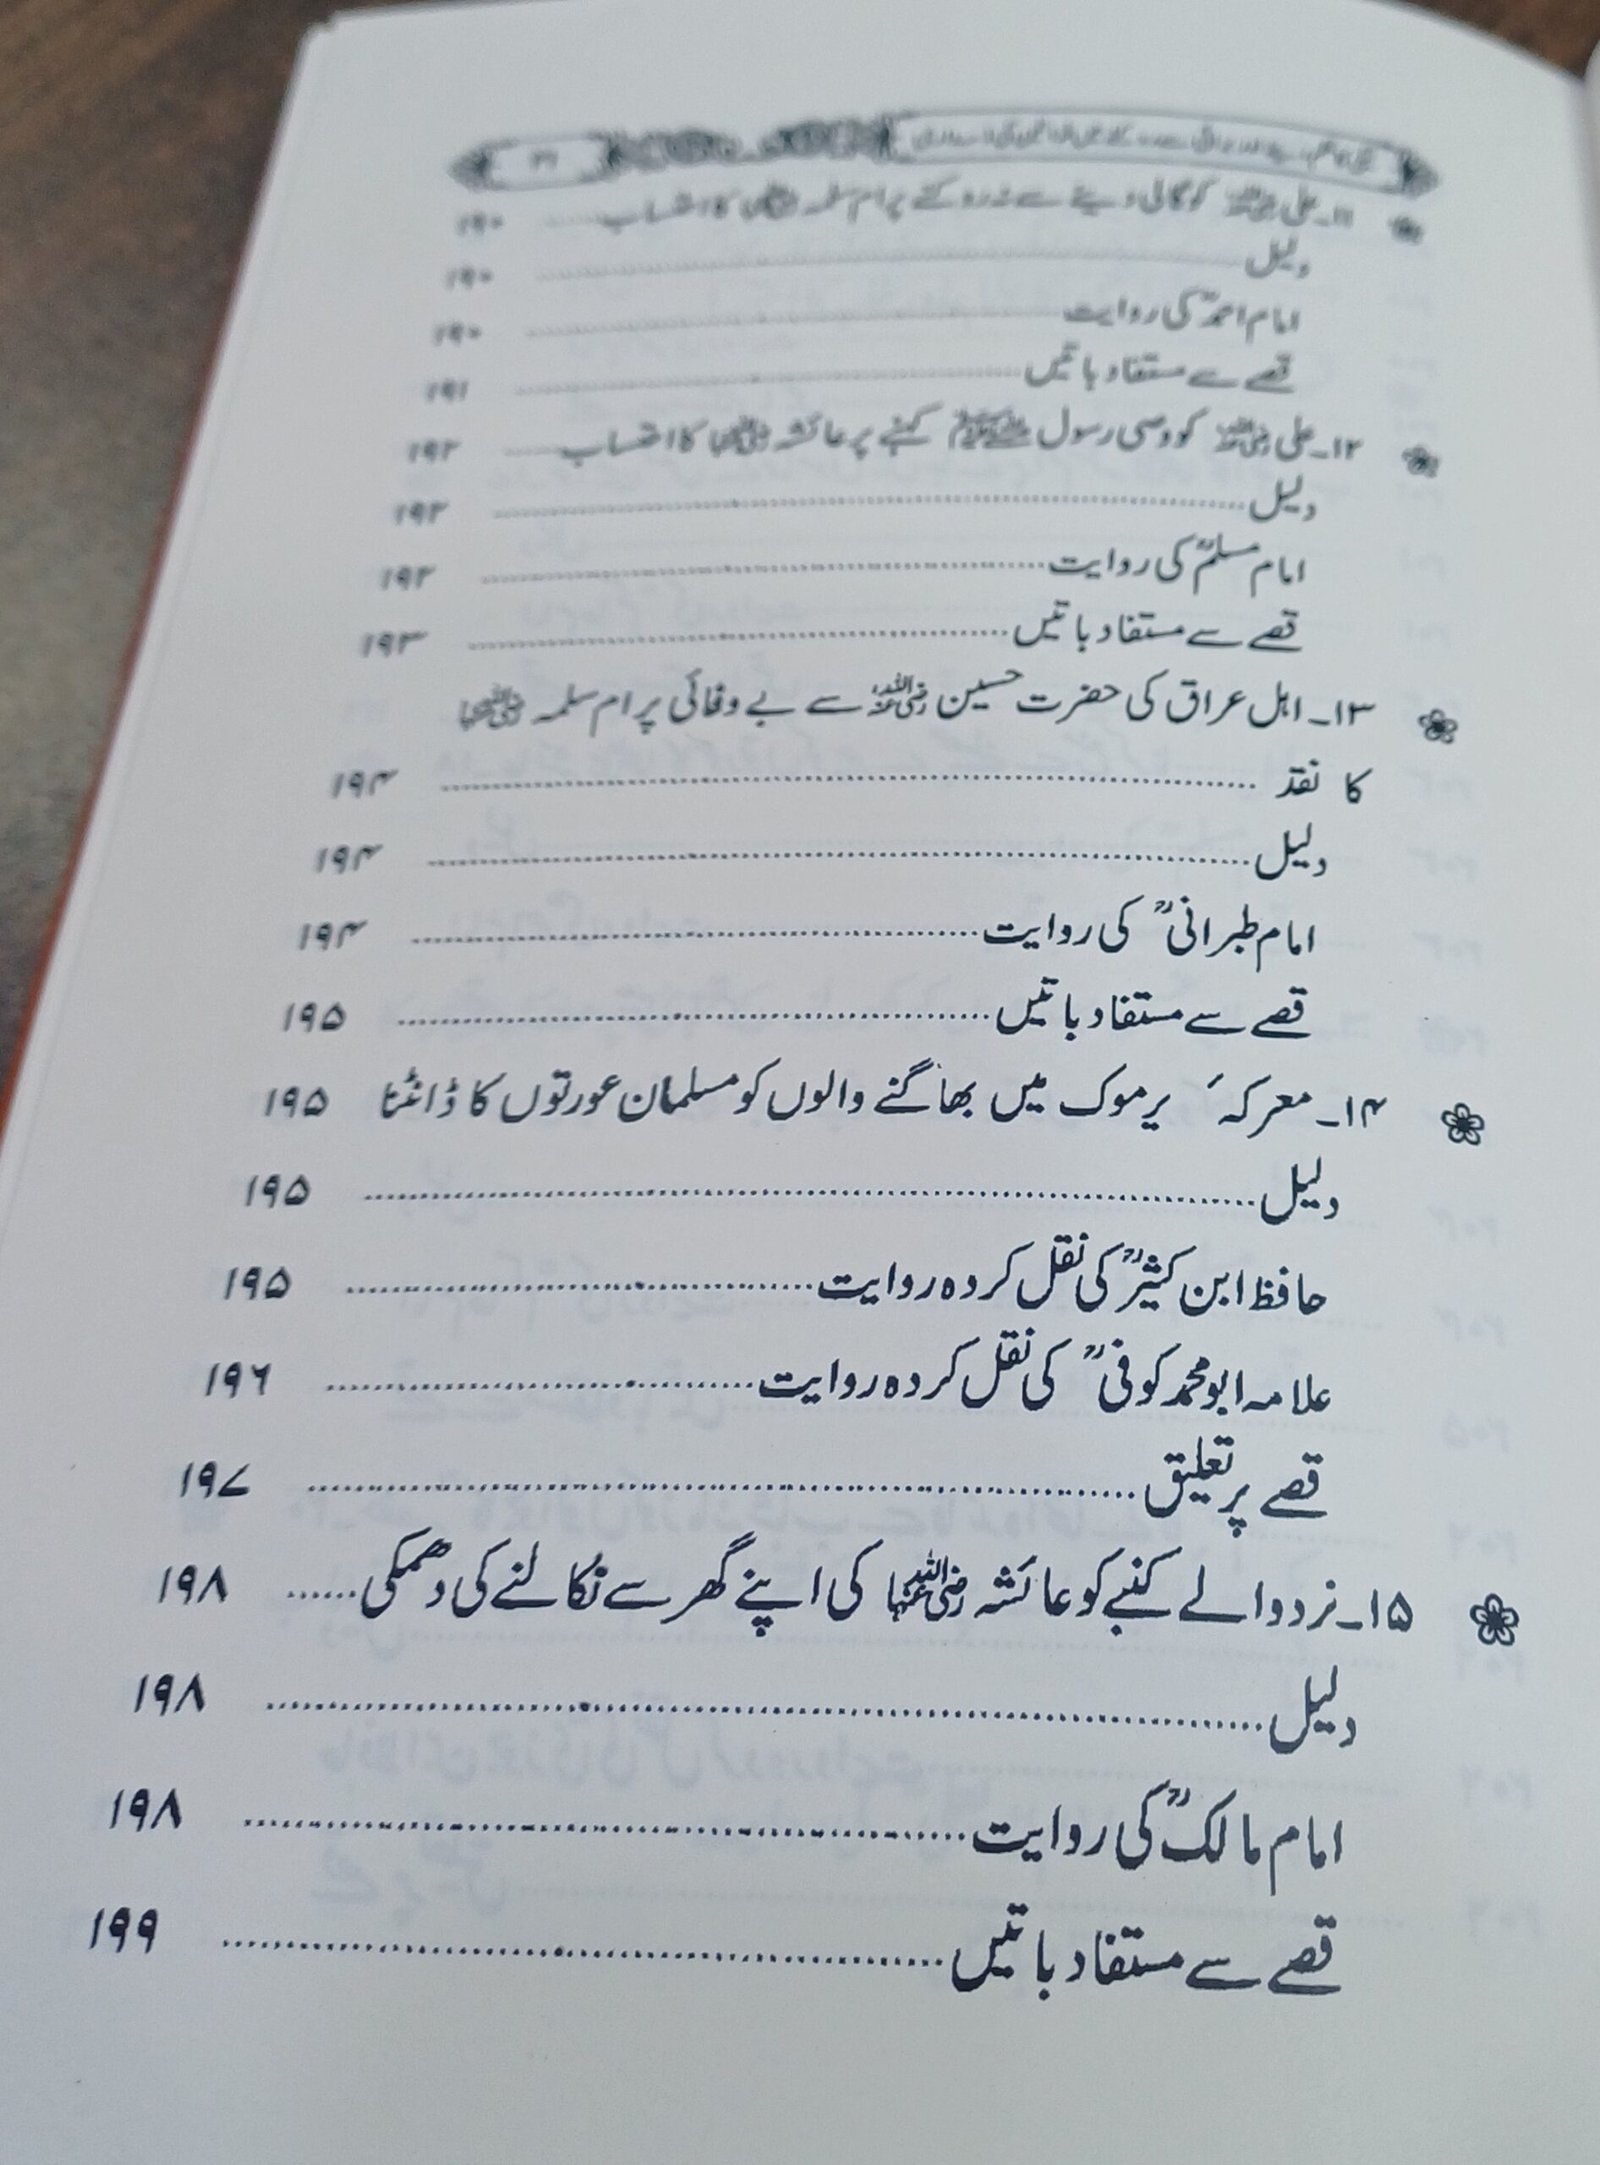 ۱۱۔ علی رضی اللہ عنہ کو گالی دینے سے نہ روکنے پر ام سلمہ رضی اللہ عنہا کا احتساب ........ ۱۹۰
دلیل ........ ۱۹۰
امام احمدؒ کی روایت ........ ۱۹۰
قصے سے مستفاد باتیں ........ ۱۹۱
۱۲۔ علی رضی اللہ عنہ کو وصی رسول ﷺ کہنے پر عائشہ رضی اللہ عنہا کا احتساب ........ ۱۹۲
دلیل ........ ۱۹۲
امام مسلمؒ کی روایت ........ ۱۹۲
قصے سے مستفاد باتیں ........ ۱۹۳
۱۳۔ اہل عراق کی حضرت حسین رضی اللہ عنہ سے بے وفائی پر ام سلمہ رضی اللہ عنہا
کا نقد ........ ۱۹۴
دلیل ........ ۱۹۴
امام طبرانیؒ کی روایت ........ ۱۹۴
قصے سے مستفاد باتیں ........ ۱۹۵
۱۴۔ معرکہٴ یرموک میں بھاگنے والوں کو مسلمان عورتوں کا ڈانٹنا ۱۹۵
دلیل ........ ۱۹۵
حافظ ابن کثیرؒ کی نقل کردہ روایت ........ ۱۹۵
علامہ ابو محمد کوفیؒ کی نقل کردہ روایت ........ ۱۹۶
قصے پر تعلیق ........ ۱۹۷
۱۵۔ نرد والے کنبے کو عائشہ رضی اللہ عنہا کی اپنے گھر سے نکالنے کی دھمکی ...... ۱۹۸
دلیل ........ ۱۹۸
امام مالکؒ کی روایت ........ ۱۹۸
قصے سے مستفاد باتیں ........ ۱۹۹